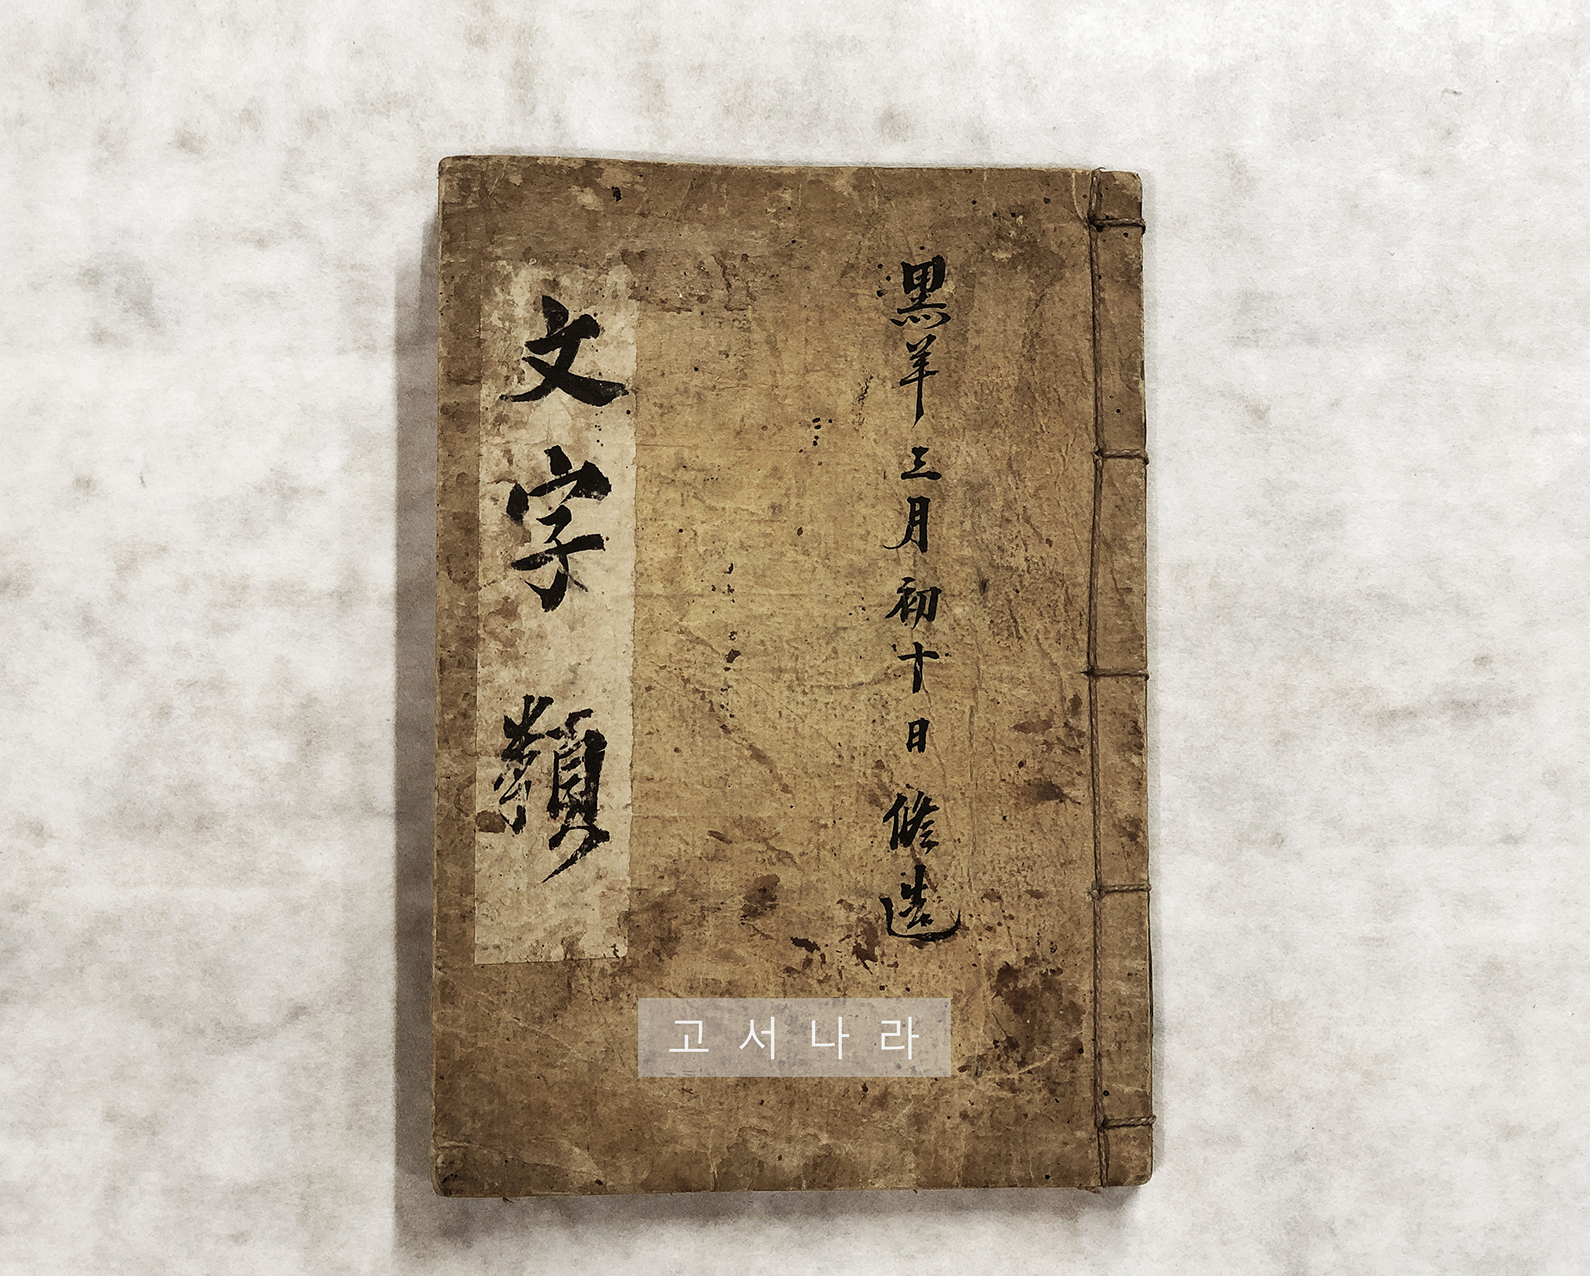 黒羊三月初十日修造
文字類
고서나라